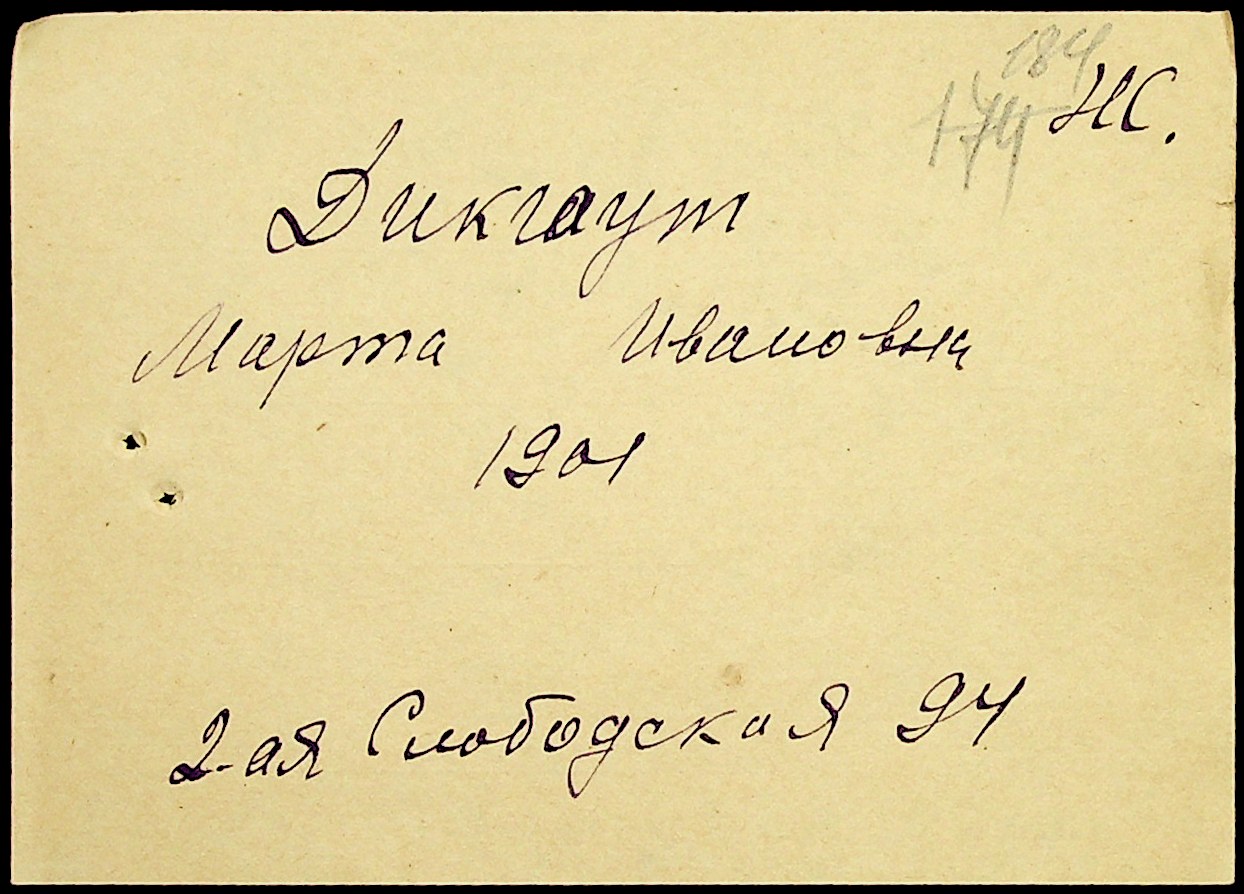 184
174 НС.
Дикгаут
Марта Ивановна
1901
2-ая Слободская 94